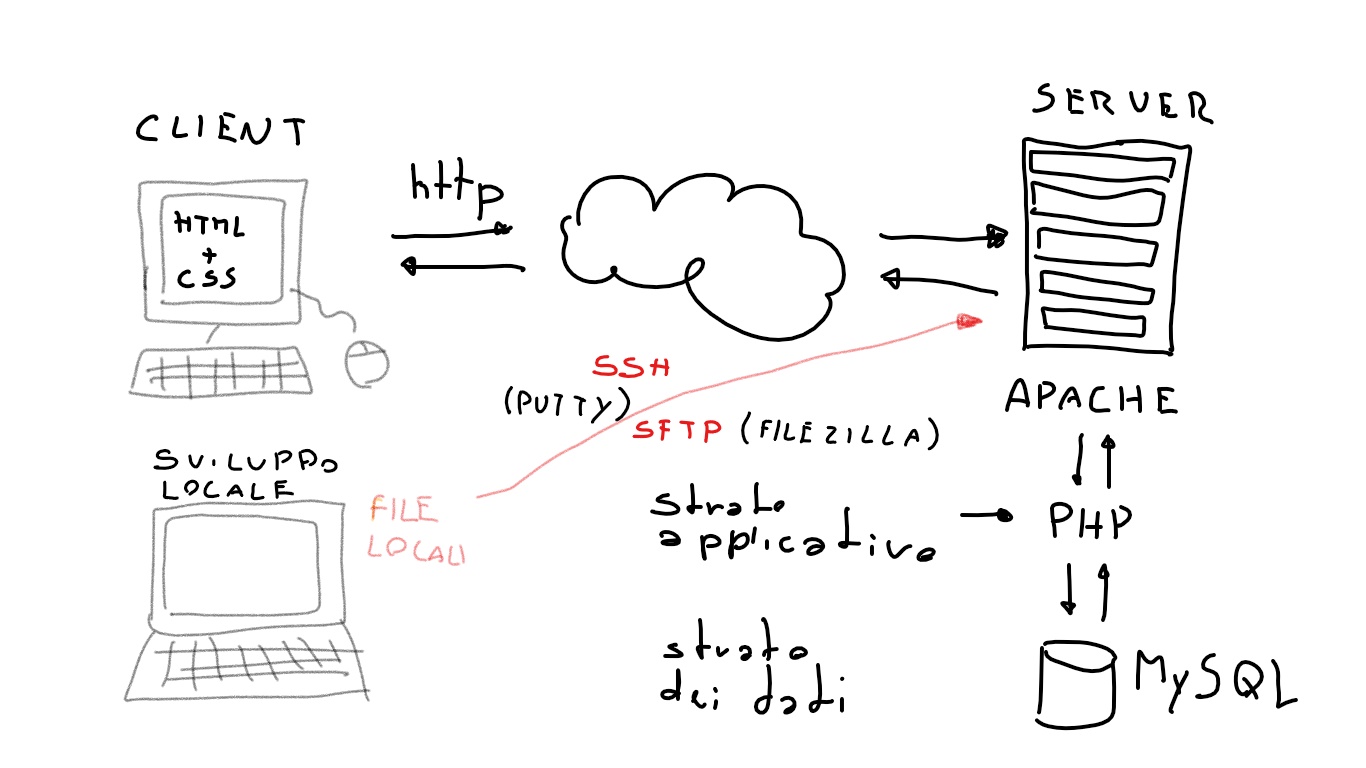 CLIENT
SERVER
http
HTML
+
CSS
SSH
(PUTTY)
SFTP (FILEZILLA)
APACHE
SVILUPPO
LOCALE
FILE
LOCALI
strato
applicativo
PHP
strato
dei dati
MySQL